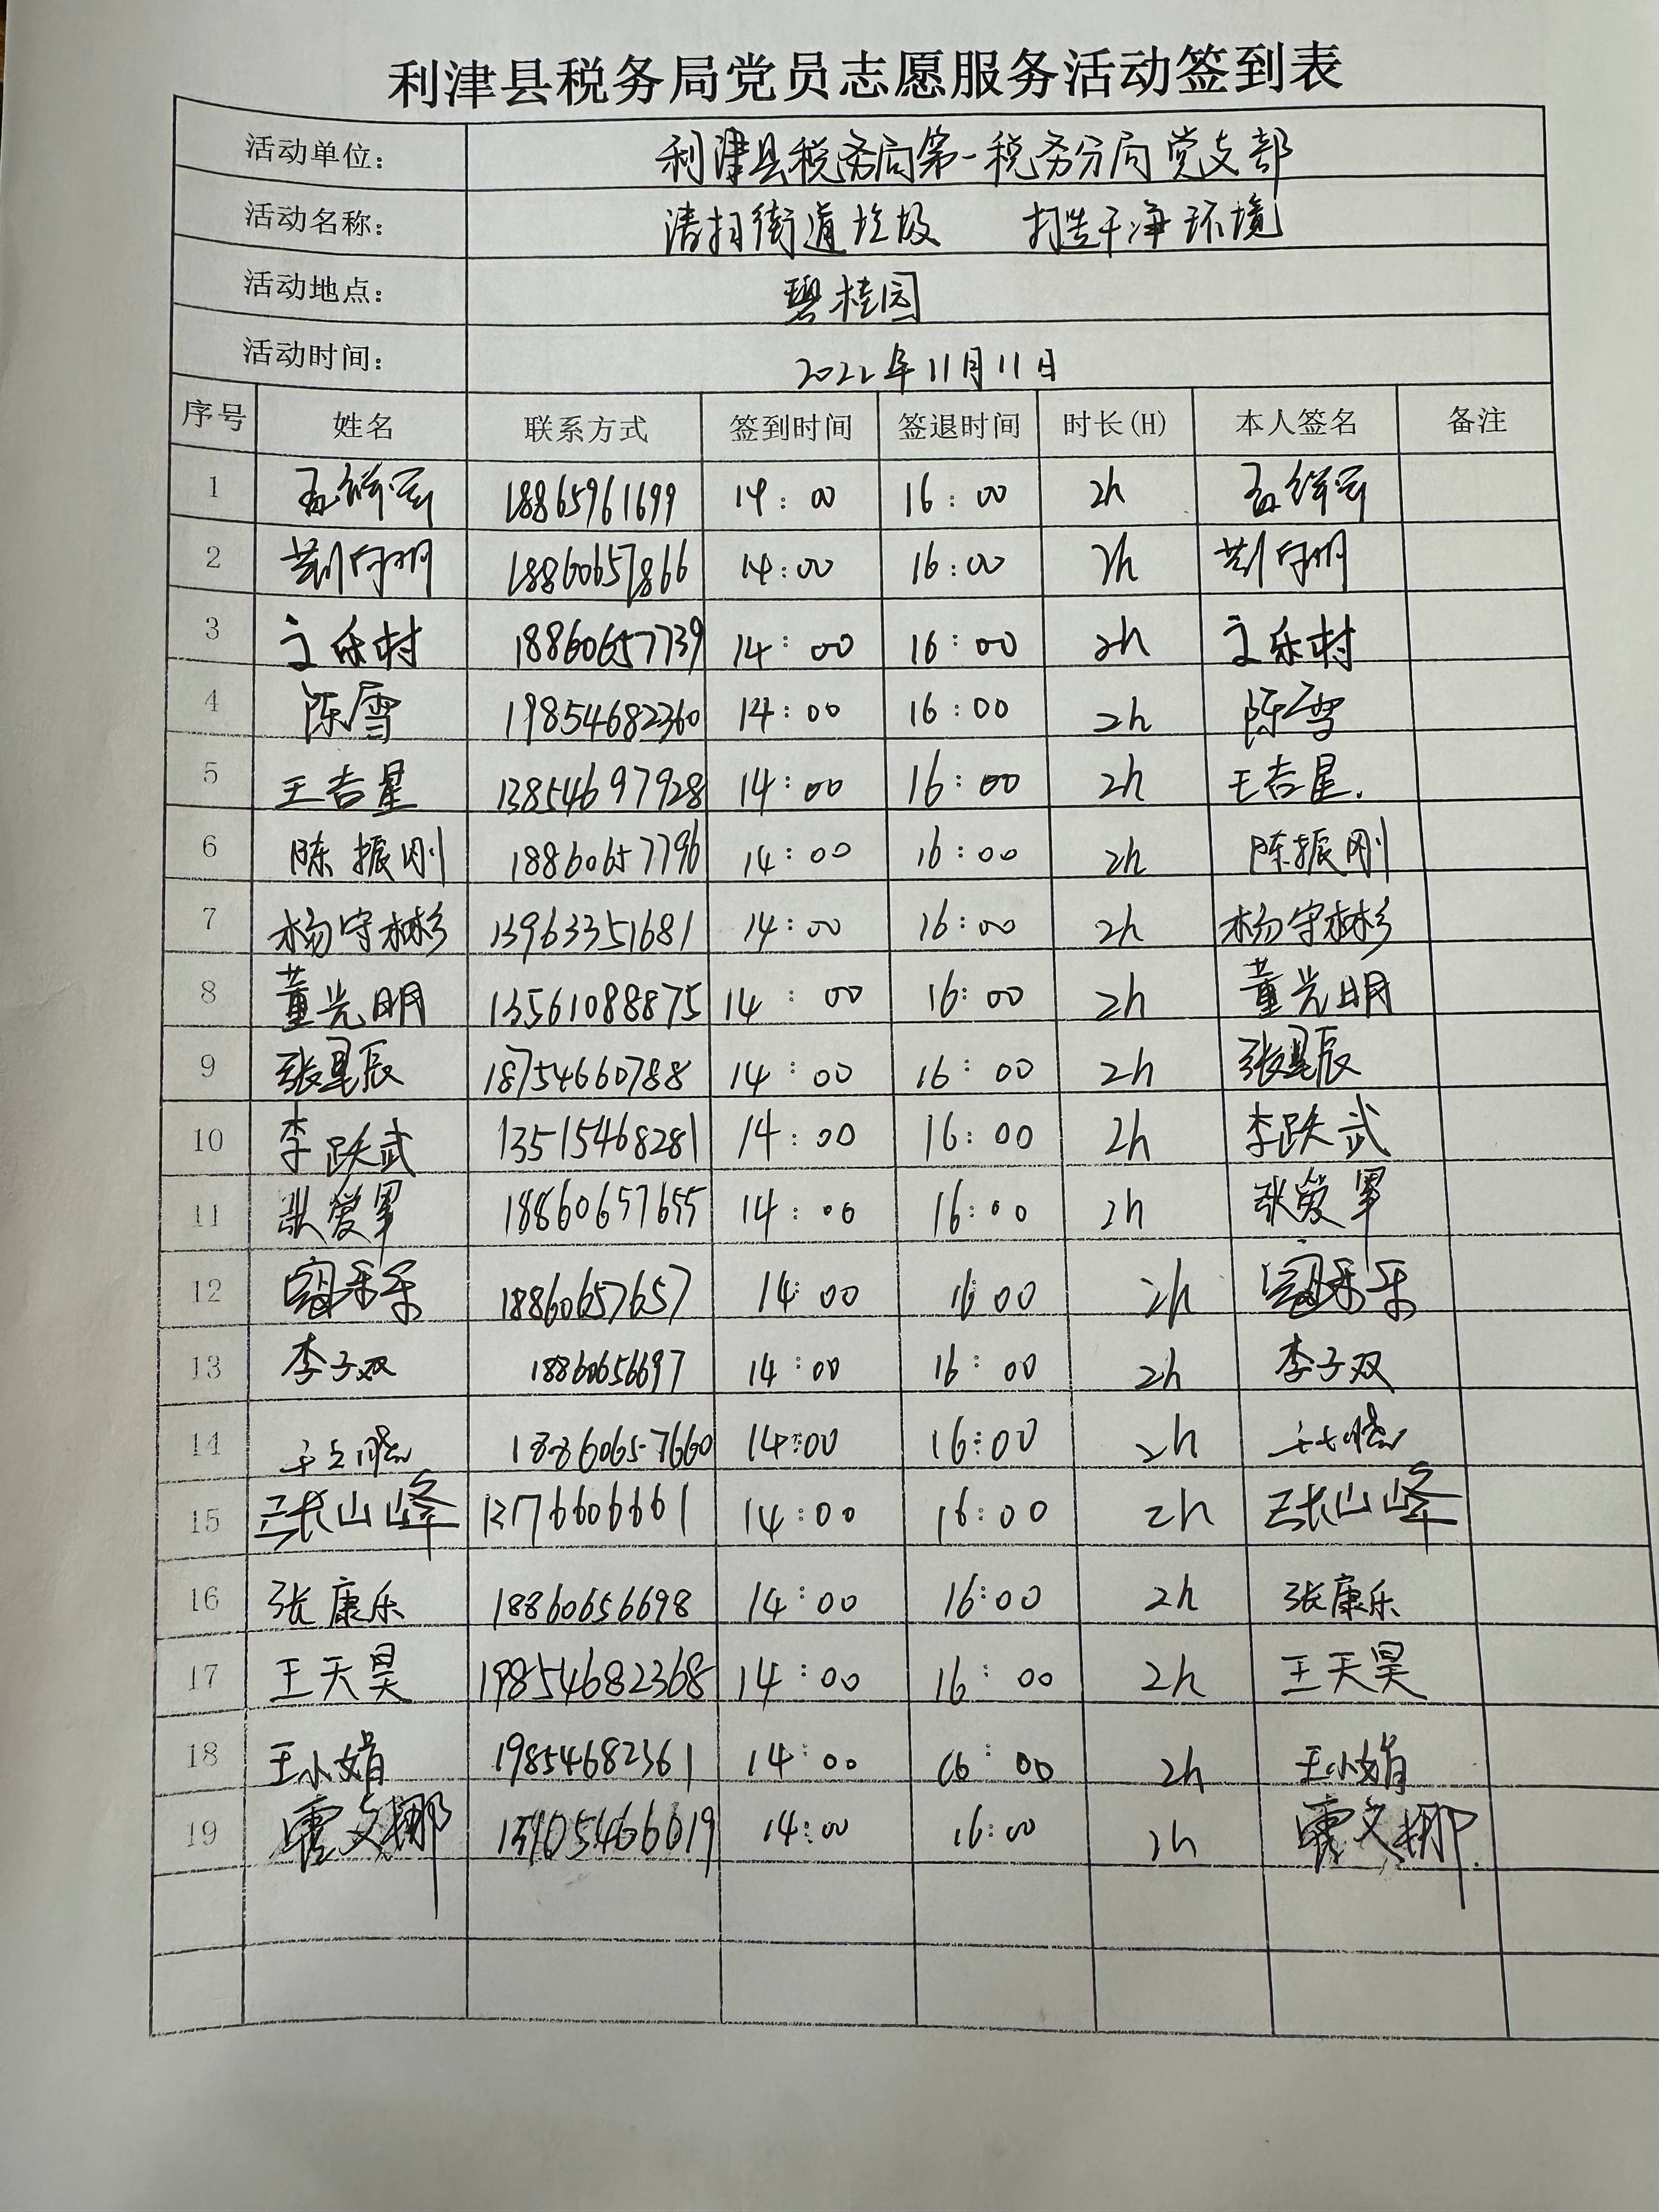 利津县税务局党员志愿服务活动签到表
活动单位： 利津县税务局第一税务分局党支部
活动名称： 清扫街道垃圾 打造干净环境
活动地点： 碧桂园
活动时间： 2022年11月11日
序号 姓名 联系方式 签到时间 签退时间 时长(H) 本人签名 备注
1 18865961699 14：00 16：00 2h
2 18860657866 14:00 16:00 2h
3 18860657739 14：00 16：00 2h
4 陈雪 19854682360 14：00 16：00 2h 陈雪
5 王吉星 13854697928 14：00 16：00 2h 王吉星.
6 陈振刚 18860657796 14：00 16：00 2h 陈振刚
7 杨守彬 13963351681 14：00 16：00 2h 杨守彬
8 董光明 13561088875 14：00 16：00 2h 董光明
9 张星辰 18754660788 14：00 16：00 2h 张星辰
10 李跃武 13515468281 14：00 16：00 2h 李跃武
11 18860657655 14：00 16：00 2h
12 18860657657 14：00 16：00 2h
13 李子双 18860656697 14：00 16：00 2h 李子双
14 18860657660 14：00 16：00 2h
15 张山峰 14：00 16：00 2h 张山峰
16 张康乐 18860656698 14：00 16：00 2h 张康乐
17 王天昊 19854682368 14：00 16：00 2h 王天昊
18 王小娟 19854682361 14：00 16：00 2h 王小娟
19 14：00 16：00 2h